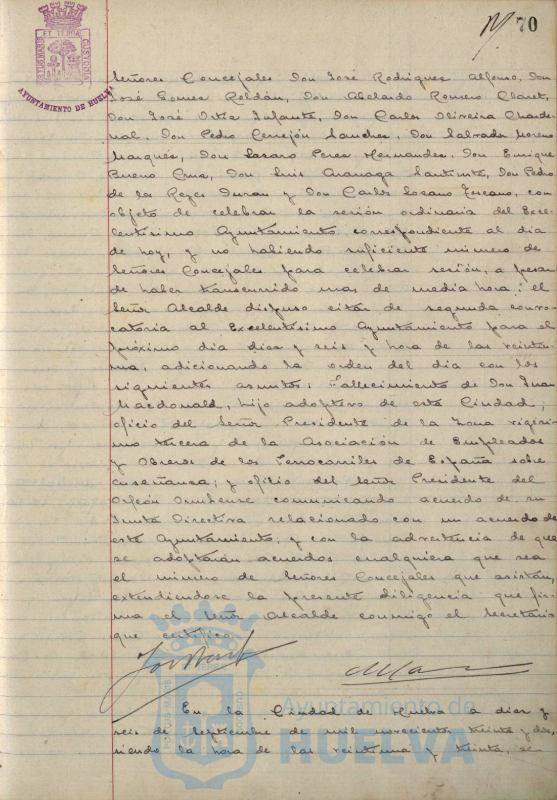 70
AYUNTAMIENTO DE HUELVA
Señores Concejales Don José Rodriguez Alfonso, Don
José Gomez Roldán, Don Abelardo Romero Claret,
Don José Ortiz Infante, Don Carlos Oliveira Chardenal,
Don Pedro Cerrejón Sanchez, Don Salvador Moreno
Marquez, Don Lazaro Perez Hernandez, Don Enrique
Bueno Cruz, Don Luis Aranaga Don Pedro
de los Reyes Duran y Don Carlos Lozano con
objeto de celebrar la sesión ordinaria del Exce-
lentisimo Ayuntamiento correspondiente al dia
de hoy, y no habiendo suficiente número de
Señores Concejales para celebrar sesión, a pesar
de haber transcurrido mas de media hora; el
Señor Alcalde dispuso citar de segunda convo-
catoria al Excelentisimo Ayuntamiento para el
próximo dia diez y seis y hora de las veintiu-
na, adicionando la orden del dia con los
siguientes asuntos: Fallecimiento de Don Juan
Macdonald, hijo adoptivo de esta Ciudad;
oficio del Señor Presidente de la Zona vigesi-
mo tercera de la Asociación de Empleados
y Obreros de los Ferrocarriles de España sobre
enseñanza; y oficio del Señor Presidente del
Orfeón Onubense comunicando acuerdo de su
Junta Directiva relacionado con un acuerdo de
este Ayuntamiento, y con la advertencia de que
se adoptarán acuerdos cualquiera que sea
el número de Señores Concejales que asistan,
extendiendose la presente diligencia que fir-
ma el Señor Alcalde conmigo el Secretario
que certifico.
En la Ciudad de Huelva a diez y
seis de Septiembre de mil novecientos treinta y dos,
siendo la hora de las veintiuna y treinta, se
Ayuntamiento de
HUELVA